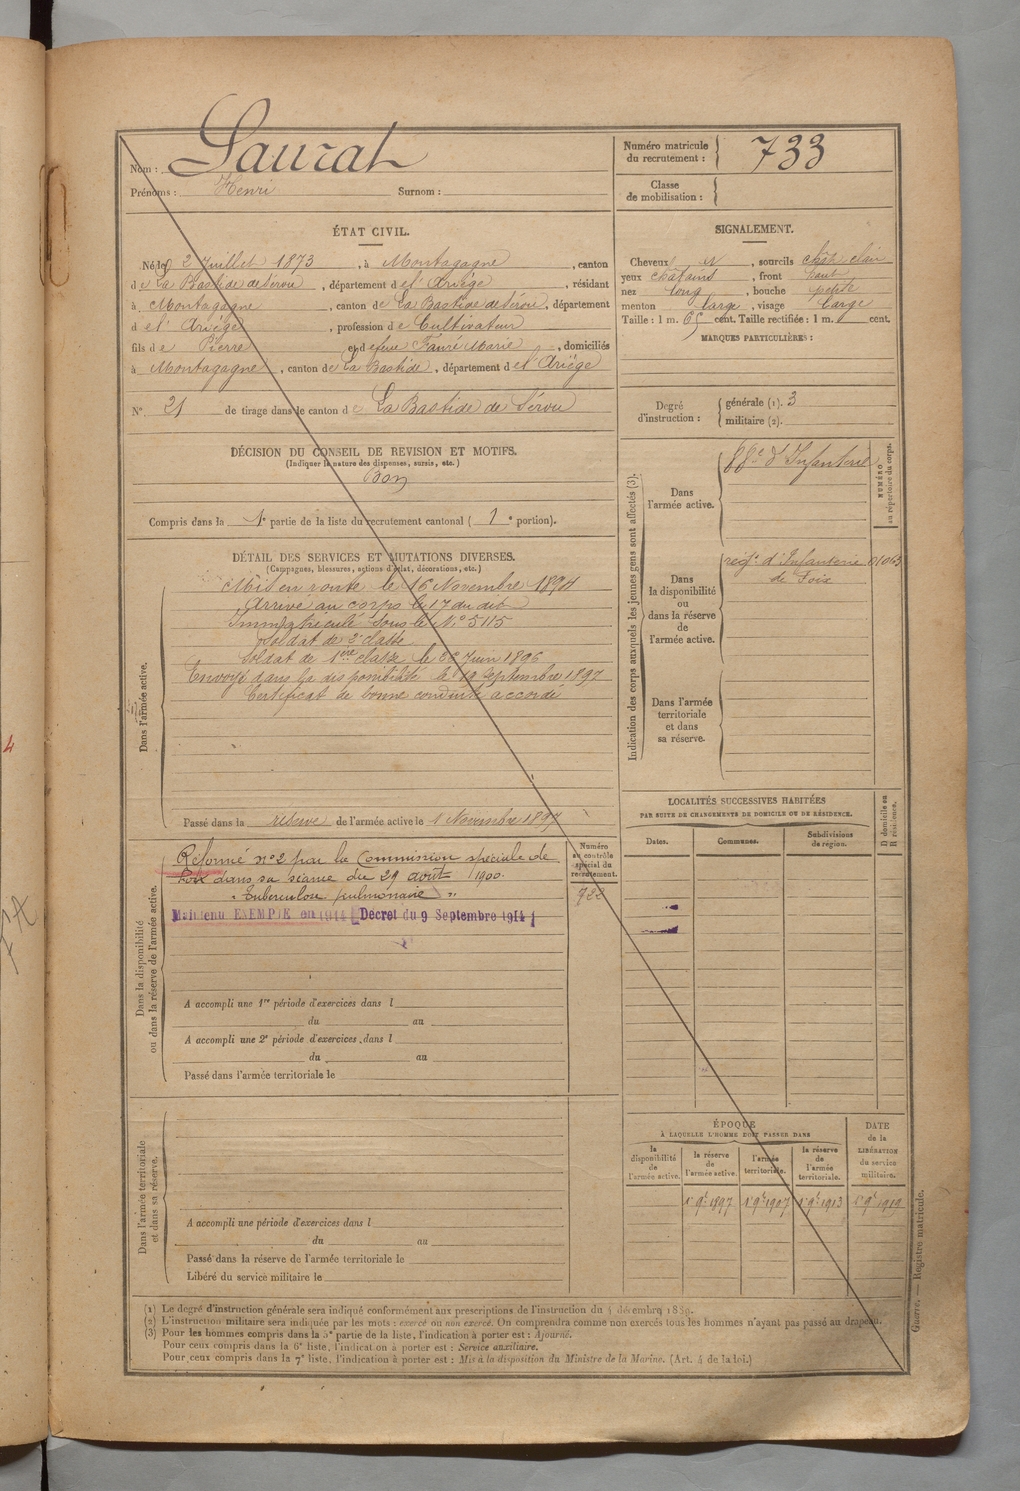 Nom : Laurat
Prénoms : Henri Surnom :
Numéro matricule du recrutement : 733
Classe de mobilisation :
ÉTAT CIVIL.
Né le 2 Juillet 1873, à Montagagne, canton
de La Bastide de Sérou, département de l'Ariège, résidant
à Montagagne, canton de La Bastide de Sérou, département
de l'Ariège, profession de Cultivateur
fils de Pierre et de feue Fauré Marie, domiciliés
à Montagagne, canton de La Bastide, département de l'Ariège
N° 21 de tirage dans le canton de La Bastide de Sérou
SIGNALEMENT.
Cheveux N, sourcils chât. clair
yeux chatains, front haut
nez long, bouche petite
menton large, visage large
Taille : 1 m. 65 cent. Taille rectifiée : 1 m. cent.
MARQUES PARTICULIÈRES :
Degré d'instruction : générale (1). 3
militaire (2).
DÉCISION DU CONSEIL DE REVISION ET MOTIFS.
(Indiquer la nature des dispenses, sursis, etc.)
Bon
Compris dans la 1e partie de la liste du recrutement cantonal ( 1e portion).
Indication des corps auxquels les jeunes gens sont affectés (3).
NUMÉRO au répertoire du corps.
Dans l'armée active.
88e d'Infanterie
Dans la disponibilité ou dans la réserve de l'armée active.
régt d'Infanterie 01063
de Foix
Dans l'armée territoriale et dans sa réserve.
DÉTAIL DES SERVICES ET MUTATIONS DIVERSES.
(Campagnes, blessures, actions d'éclat, décorations, etc.)
Dans l'armée active.
Mis en route le 16 Novembre 1894
Arrivé au corps le 17 du dit
Immatriculé sous le N° 5115
Soldat de 2e classe
Soldat de 1ère classe le Juin 1896
Envoyé dans la disponibilité le 19 Septembre 1897
Certificat de bonne conduite accordé
Passé dans la réserve de l'armée active le 1 Novembre 1897
Dans la disponibilité ou dans la réserve de l'armée active.
Numéro au contrôle spécial du recrutement.
722
Réformé n° 2 par la Commission spéciale de
Foix dans sa séance du 29 août 1900.
" Tuberculose pulmonaire "
Maintenu EXEMPTE en 1914 Décret du 9 Septembre 1914
A accompli une 1re période d'exercices dans l
du au
A accompli une 2e période d'exercices dans l
du au
Passé dans l'armée territoriale le
LOCALITÉS SUCCESSIVES HABITÉES
PAR SUITE DE CHANGEMENTS DE DOMICILE OU DE RÉSIDENCE.
Dates. Communes. Subdivisions de région. D domicile ou R résidence.
Dans l'armée territoriale et dans sa réserve.
A accompli une période d'exercices dans l
du au
Passé dans la réserve de l'armée territoriale le
Libéré du service militaire le
ÉPOQUE
À LAQUELLE L'HOMME DOIT PASSER DANS
la disponibilité de l'armée active. la réserve de l'armée active. l'armée territoriale. la réserve de l'armée territoriale.
DATE de la LIBÉRATION du service militaire.
1r 9e 1897 1r 9e 1907 1r 9e 1913 1r 9e 1919
(1) Le degré d'instruction générale sera indiqué conformément aux prescriptions de l'instruction du 4 décembre 1889.
(2) L'instruction militaire sera indiquée par les mots : exercé ou non exercé. On comprendra comme non exercés tous les hommes n'ayant pas passé au drapeau.
(3) Pour les hommes compris dans la 5e partie de la liste, l'indication à porter est : Ajourné.
Pour ceux compris dans la 6e liste, l'indication à porter est : Service auxiliaire.
Pour ceux compris dans la 7e liste, l'indication à porter est : Mis à la disposition du Ministre de la Marine. (Art. 4 de la loi.)
Guerre. — Registre matricule.